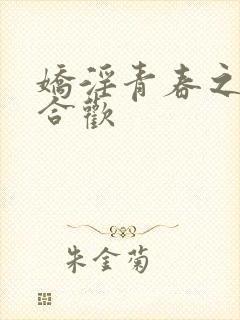 嬌淫青春之
合歡
朱金菊